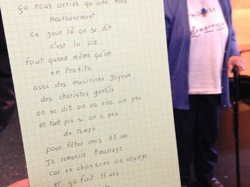 ça nous arrive qu'une fois
Heureusement
ce jour là on se dit
c'est la vie
faut quand même qu'on
en Profite
avec des musiciens joyeux
des choristes gentils
on se dit on va vite un peu
et tant pis si on a peu
de temps
pour fêter mes 83 ans
Je remercie
car en chansons on voyage
et ça fait 11 ans